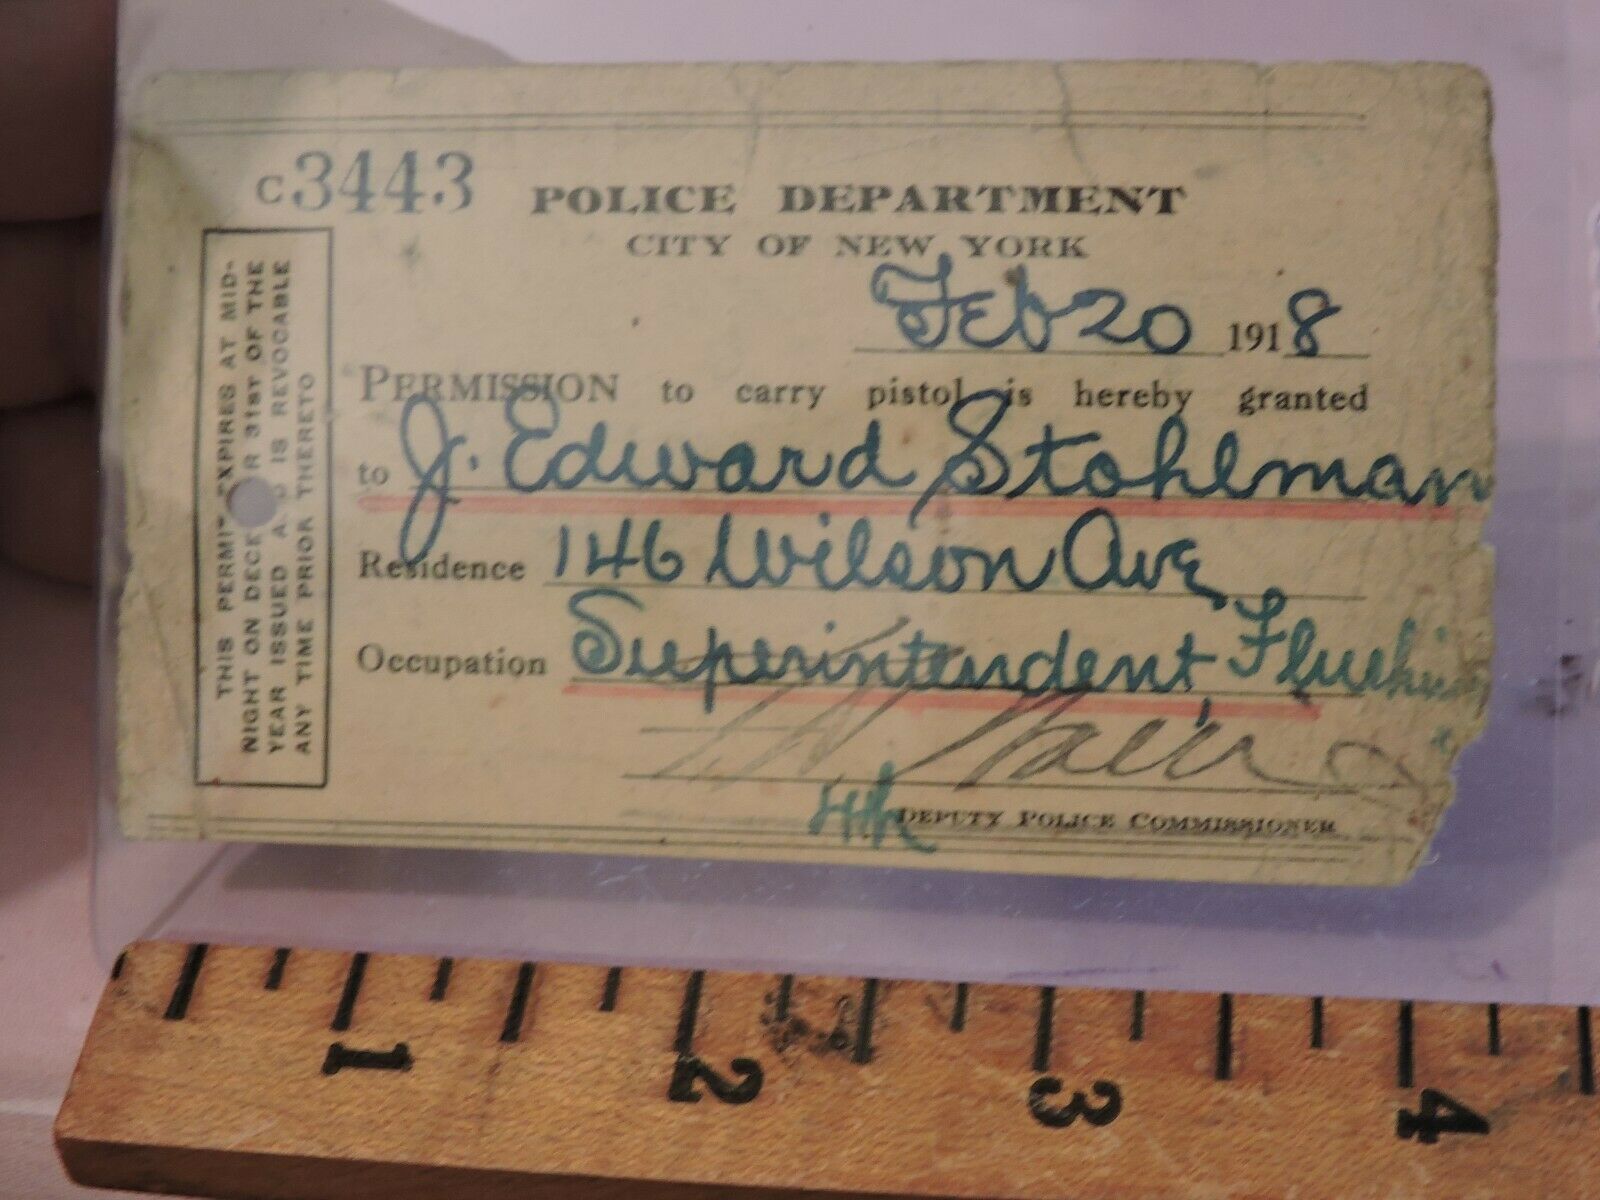 C3443
POLICE DEPARTMENT
CITY OF NEW YORK
Feb 20 1918
PERMISSION to carry pistol is hereby granted
to J. Edward Stohlman
Residence 146 Wilson Ave
Occupation Superintendent, Flushing
DEPUTY POLICE COMMISSIONER
THIS PERMIT EXPIRES AT MID-
NIGHT ON DECE R 31ST OF THE
YEAR ISSUED A D IS REVOCABLE
ANY TIME PRIOR THERETO
1 2 3 4